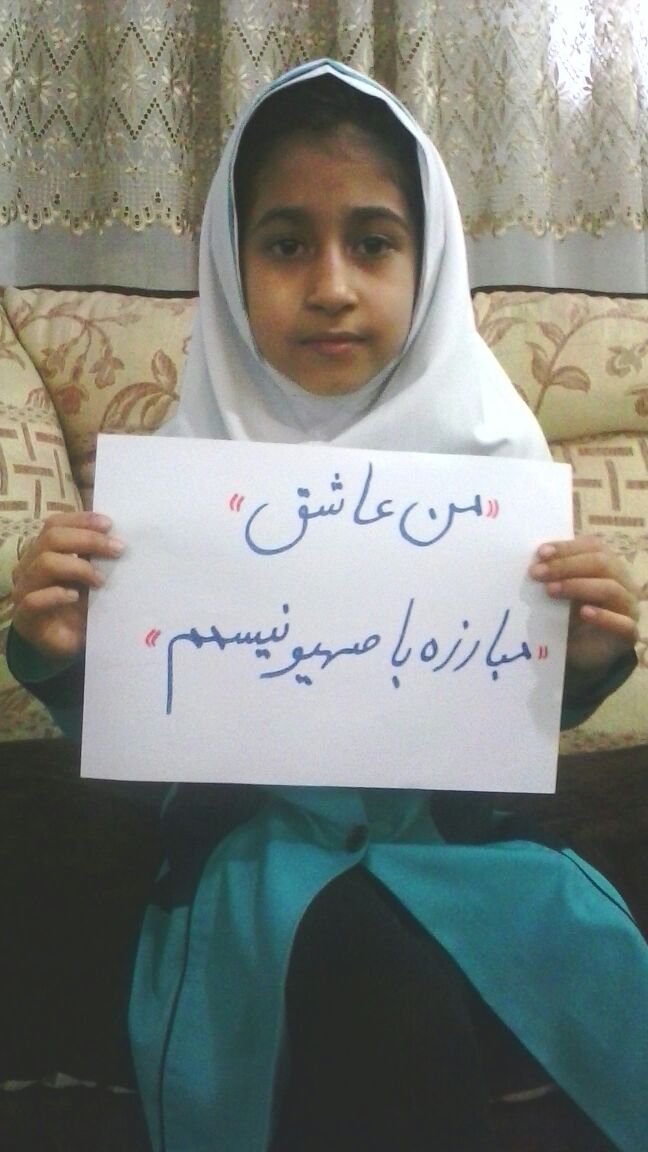 «من عاشق»
«مبارزه با صهیونیسمم»